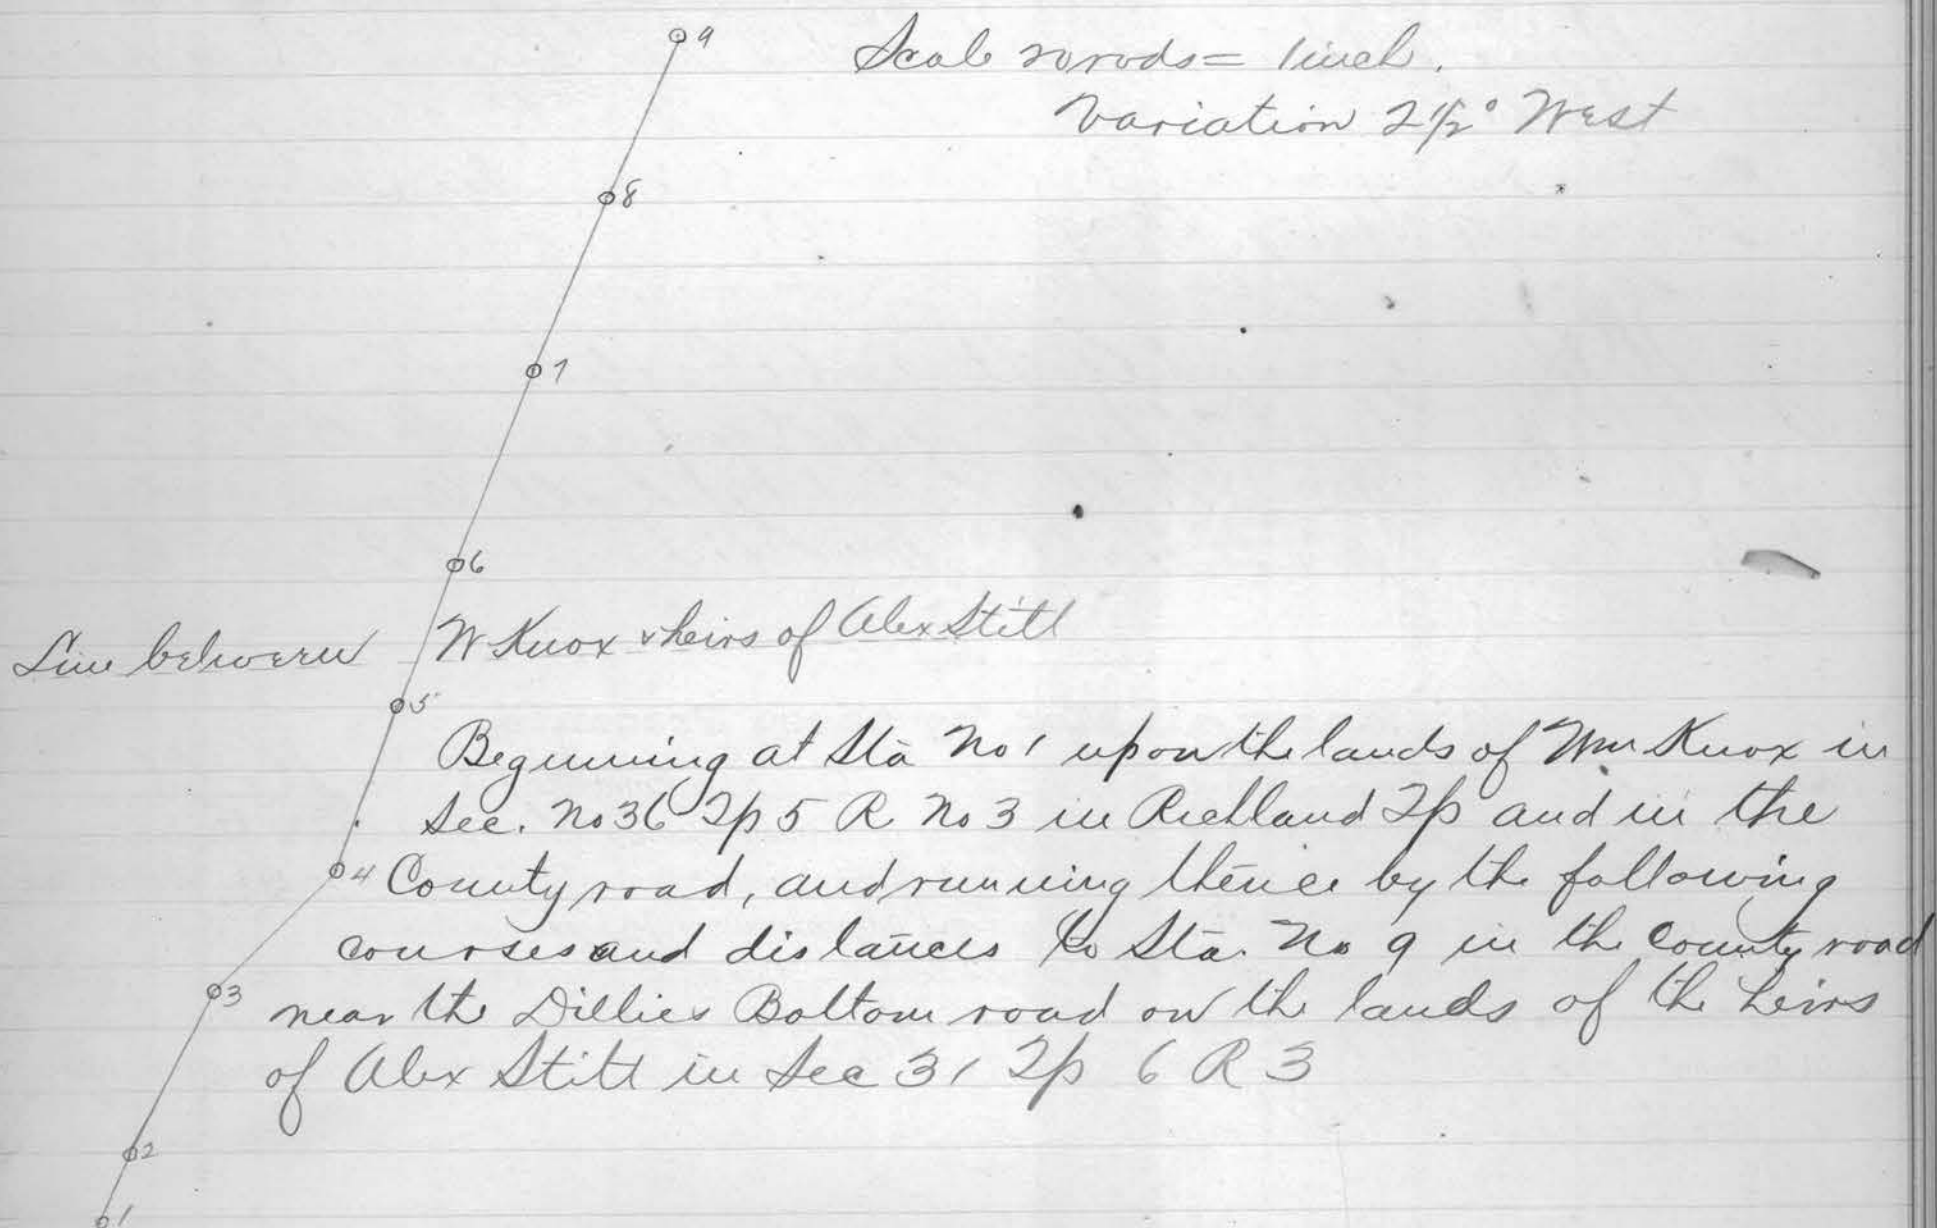 9
Scale 20 rods = 1 inch.
Variation 2 1/2° West
8
7
6
Line between W Knox & heirs of Alex Stitt
5
Beginning at Sta No 1 upon the lands of Wm Knox in
Sec. No 36 Tp 5 R No 3 in Richland Tp and in the
4
County road, and running thence by the following
courses and distances to Sta. No 9 in the County road
3
near the Dillies Bottom road on the lands of the heirs
of Alex Stitt in Sec 31 Tp 6 R 3
2
1